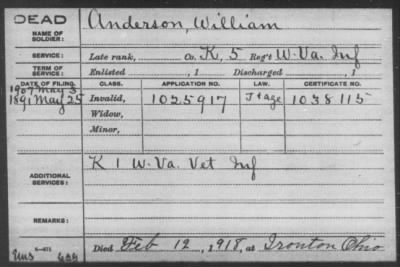 DEAD
NAME OF SOLDIER: Anderson, William
SERVICE: Late rank, Co. K, 5 Reg't W. Va. Inf
TERM OF SERVICE: Enlisted , 1 Discharged , 1
DATE OF FILING. CLASS. APPLICATION NO. LAW. CERTIFICATE NO.
1907 May 3
1891 May 25 Invalid, 1025917 J + age 1038115
Widow,
Minor,
ADDITIONAL SERVICES: K 1 W. Va. Vet Inf
REMARKS:
Died Feb 12, 1918, at Ironton Ohio